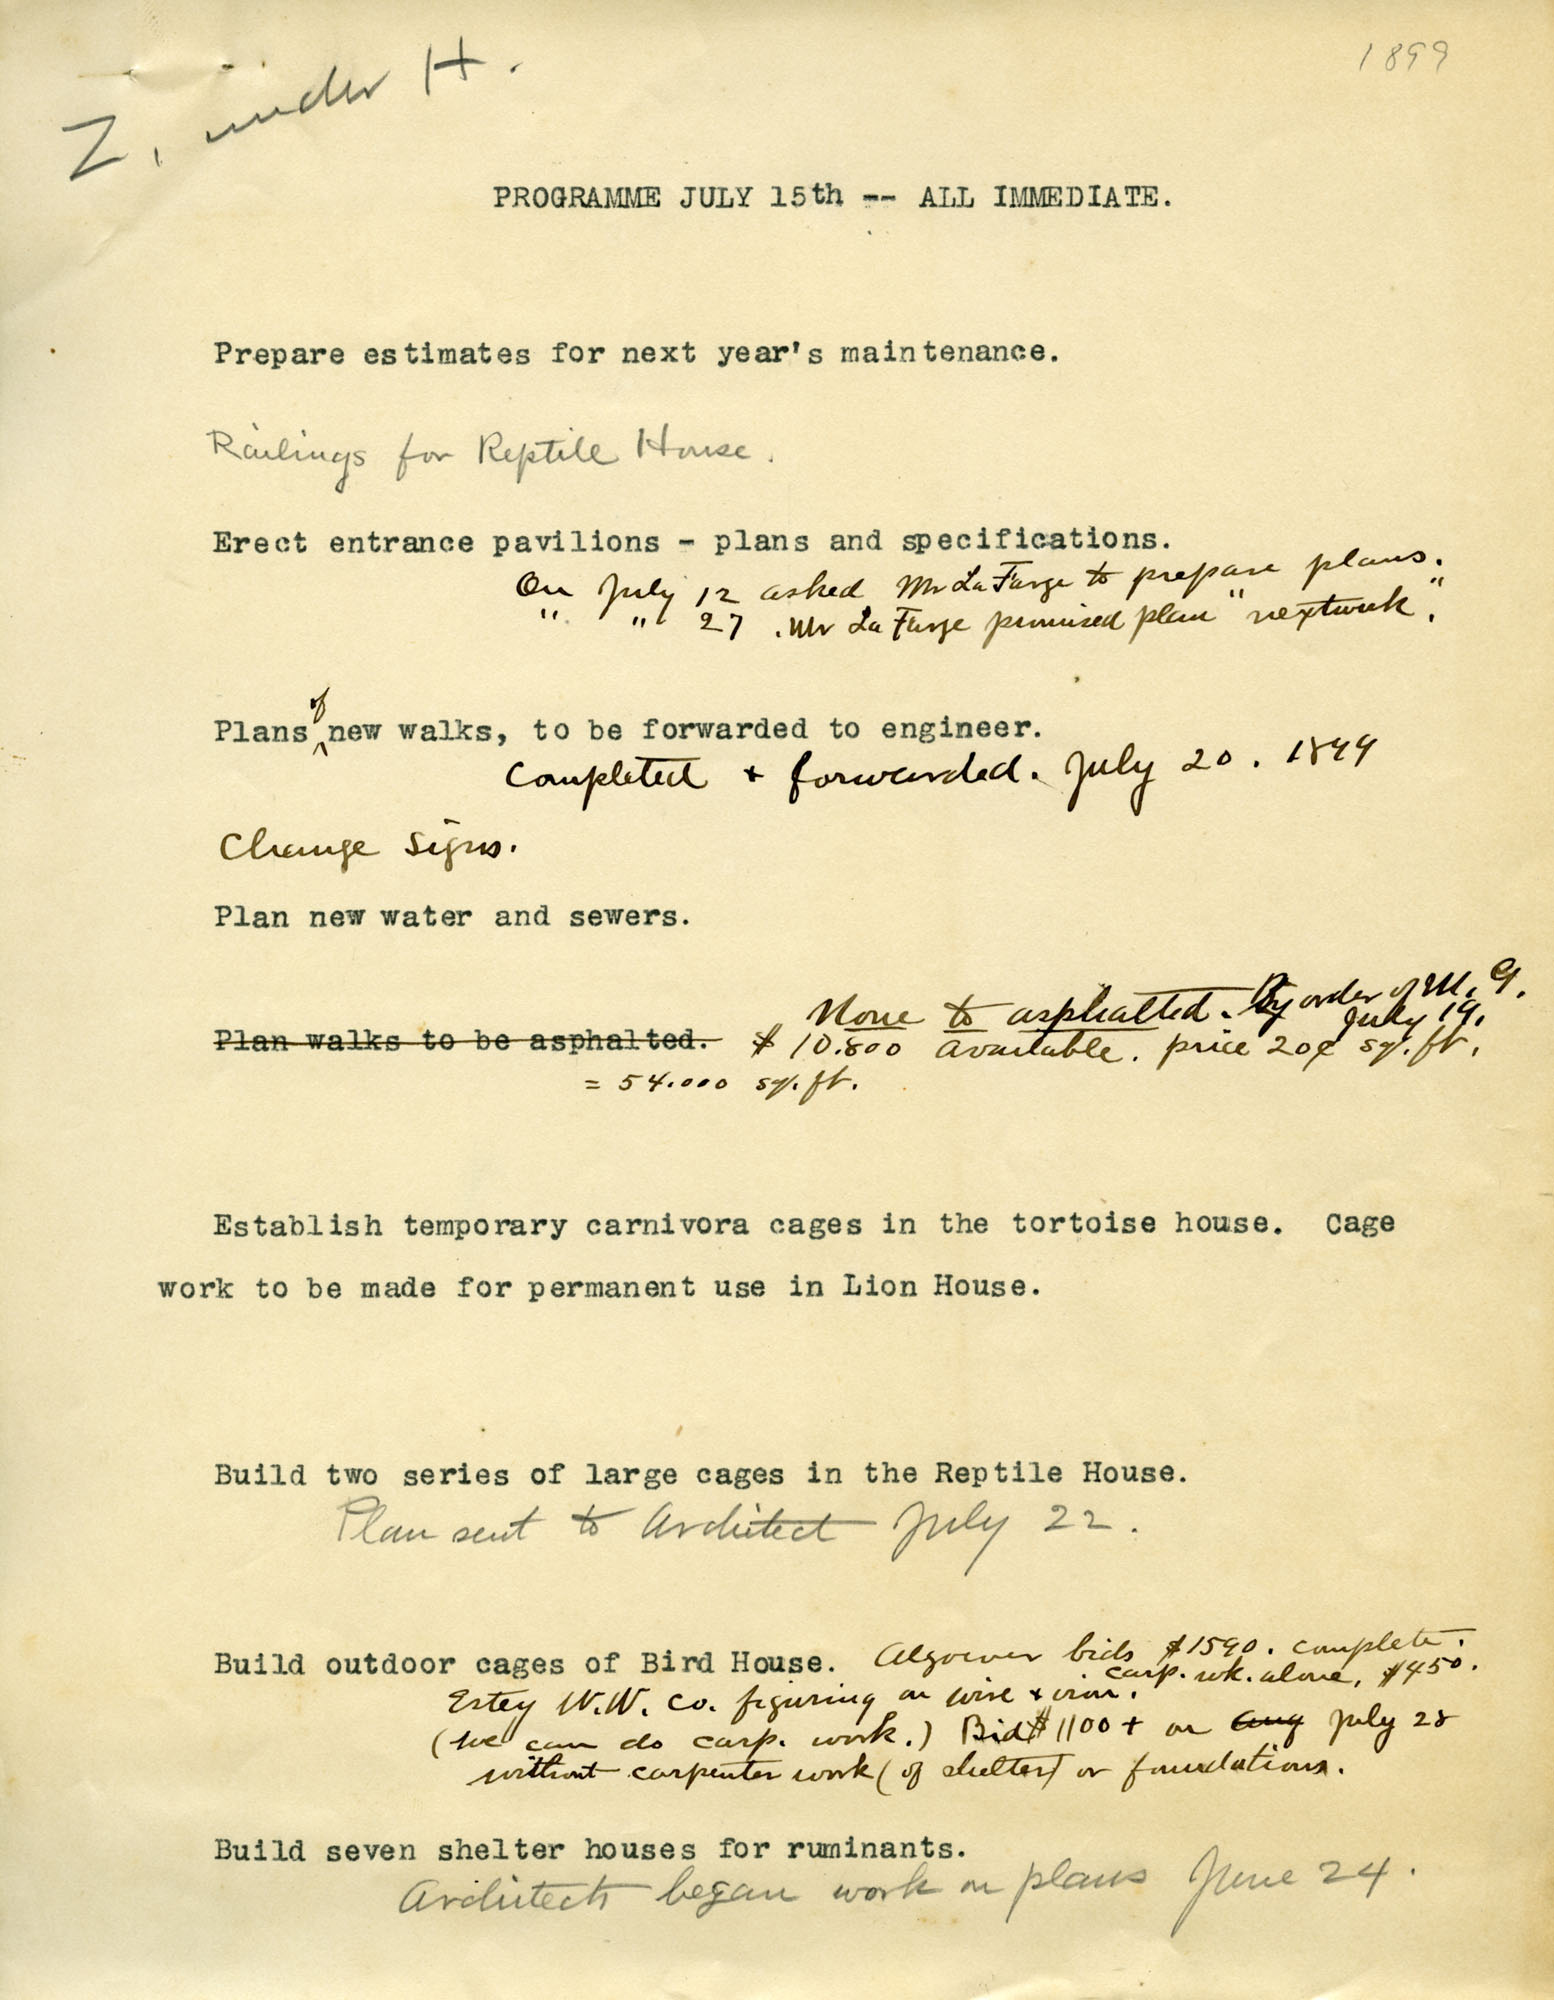 Z, under H.
1899
PROGRAMME JULY 15th -- ALL IMMEDIATE.
Prepare estimates for next year's maintenance.
Railings for Reptile House.
Erect entrance pavilions - plans and specifications.
On July 12 asked Mr La Farge to prepare plans.
" " 27 . Mr La Farge promised plan "next week".
of
Plans new walks, to be forwarded to engineer.
Completed + forwarded. July 20. 1899
Change signs.
Plan new water and sewers.
None to asphalted. By order of M. G.
July 19.
Plan walks to be asphalted. $10.800 available. price 20¢ sq. ft.
= 54.000 sq. ft.
Establish temporary carnivora cages in the tortoise house. Cage
work to be made for permanent use in Lion House.
Build two series of large cages in the Reptile House.
Plan sent to Architect July 22.
Build outdoor cages of Bird House. bids $1590. complete.
carp. wk. alone, $450.
Estey W.W. Co. figuring on wire + iron.
(We can do carp. work.) Bid $1100+ on Aug July 28
without carpenter work (of shelter) or foundations.
Build seven shelter houses for ruminants.
Architects began work on plans June 24.